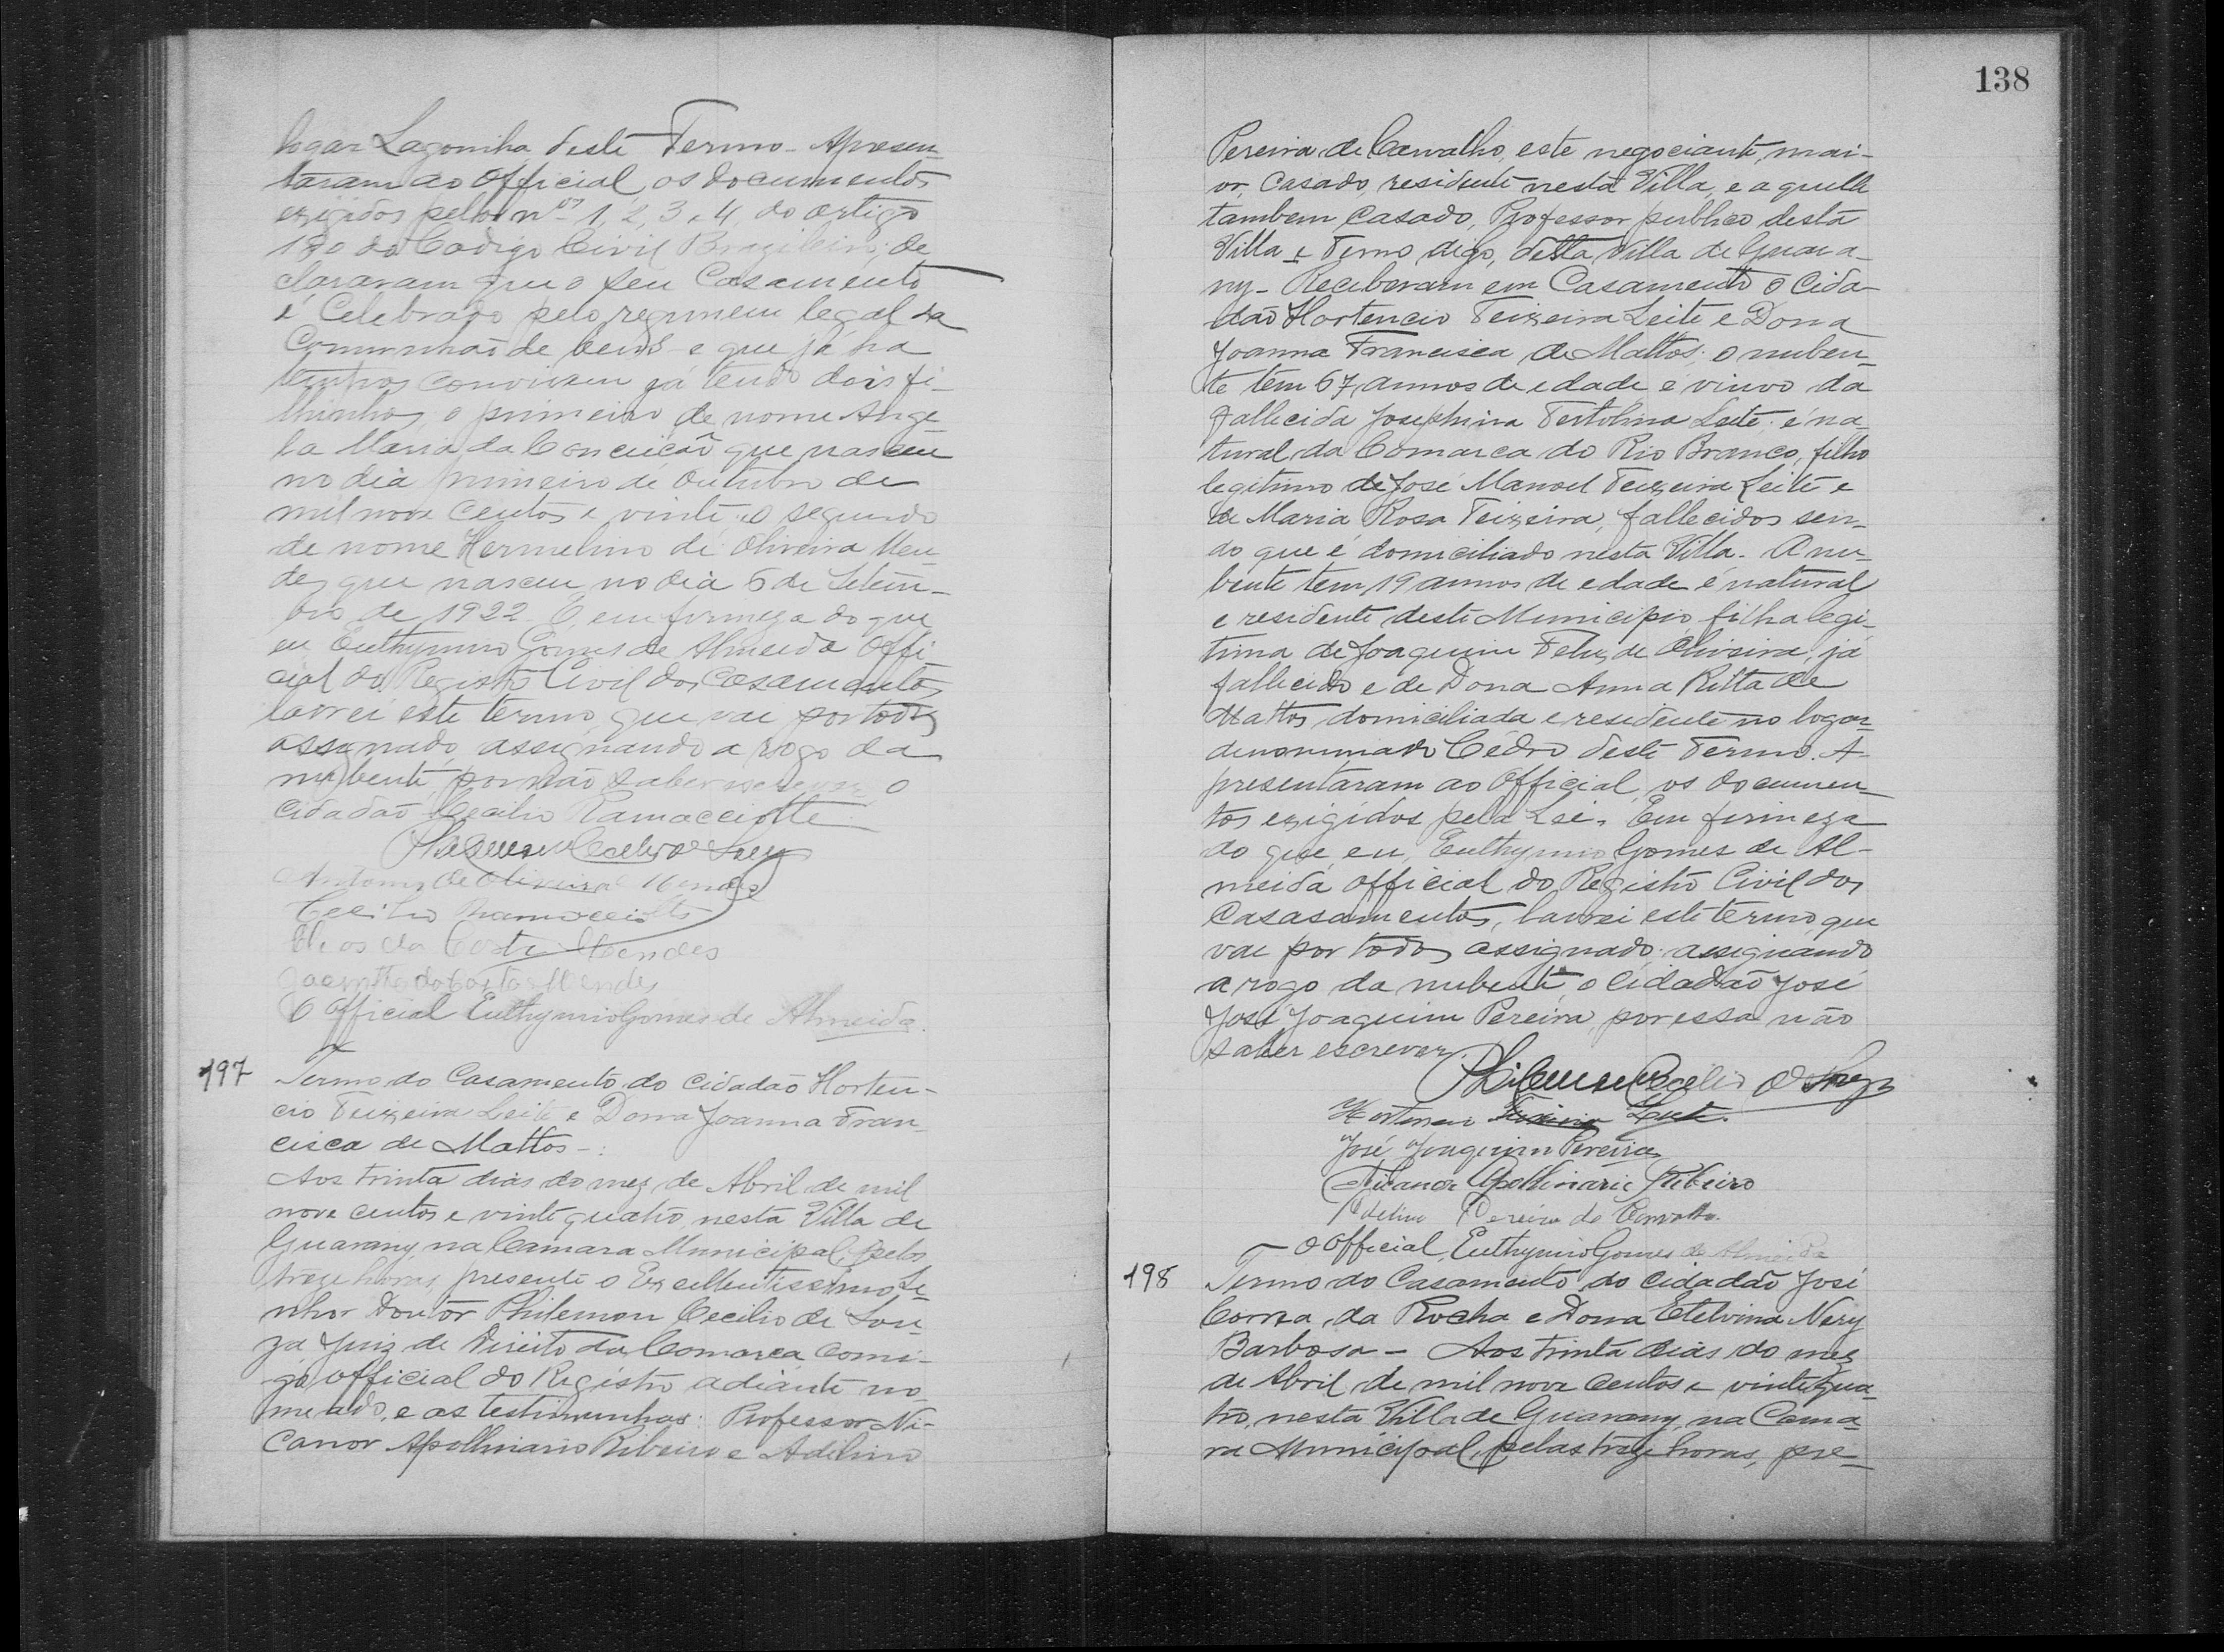 logar Lagoinha deste Termo - Apresen-
taram ao Official os documentos
exigidos pelos nos 1, 2, 3 e 4 do artigo
180 do Codigo Civil Brazileiro; de
clararam que o seu Casamento
é Celebrado pelo regimem legal da
Communhão de bens - e que já ha
tempos convivem já tendo dois fi-
lhinhos, o primeiro de nome Ange-
la Maria da Conceição que nasceu
no dia primeiro de Outubro de
mil nove Centos e vinte; o segundo
de nome Hermelino de Oliveira Men-
des que nasceu no dia 6 de Setem-
bro de 1922. E, em firmeza do que
eu Euthymio Gomes de Almeida Offi
cial do Registro Civil dos Casamentos
lavrei este termo, que vae por todos
assignado, assignando a rogo da
nubente por não saber escrever o
cidadão Cecilio Ramacciotte
Philemon Cecilio de Souza
Antonio de Oliveira Mendes
Cecilio Ramacciotte
da Costa Mendes
da Costa Mendes
O Official Euthymio Gomes de Almeida.
197 Termo do Casamento do Cidadão Horten-
cio Teixeira Leite e Dona Joanna Fran-
cisca de Mattos - :
Aos trinta dias do mez de Abril de mil
nove centos e vinte quatro, nesta Villa de
Guarany, na Camara Municipal, pelas
treze horas, presente o Excellentissimo Se-
nhor Doutor Philemon Cecilio de Sou-
za Juiz de Direito da Comarca, comi-
go official do Registro adiante no-
meado, e as testimunhas: Professor Ni-
canor Apollinario Ribeiro e Adelino
138
Pereira de Carvalho, este negociante, mai-
or, Casado, residente nesta Villa, e aquelle
tambem Casado, Professor publico desta
Villa e Termo, digo, desta Villa de Guara-
ny - Receberam em Casamento o Cida-
dão Hortencio Teixeira Leite e Dona
Joanna Francisca de Mattos; o nuben-
te tem 67 annos de edade e viuvo da
fallecida Josephina Leite; é na-
tural da Comarca do Rio Branco, filho
legitimo de José Manoel Teixeira Leite e
de Maria Rosa Teixeira, fallecidos sen-
do que é domiciliado nesta Villa. A nu-
bente tem 19 annos de edade é natural
e residente deste Municipio, filha legi-
tima de Joaquim Felis de Oliveira, já
fallecido e de Dona Anna Ritta de
Mattos domiciliada e residente no logar
denominado Cédro deste Termo. A-
presentaram ao Official, os documen-
tos exigidos pela Lei. Em firmeza
do que, eu, Euthymio Gomes de Al-
meida official do Registro Civil dos
Casasamentos, lavrei este termo, que
vae por todos assignado; assignando
a rogo da nubente, o Cidadão José
José Joaquim Pereira, por essa não
saber escrever.
Philemon Cecilio de Souza
Hortencio Teixeira Leite.
José Joaquim Pereira
Nicanor Apollinario Ribeiro
Adelino Pereira de Carvalho.
O Official, Euthymio Gomes de Almeida
198 Termo do Casamento do Cidadão José
Correa da Rocha e Dona Etelvina Nery
Barbosa - Aos trinta dias do mez
de Abril de mil nove Centos e vinte qua-
tro, nesta Villa de Guarany, na Cama-
ra Municipal, pelas treze horas, pre-